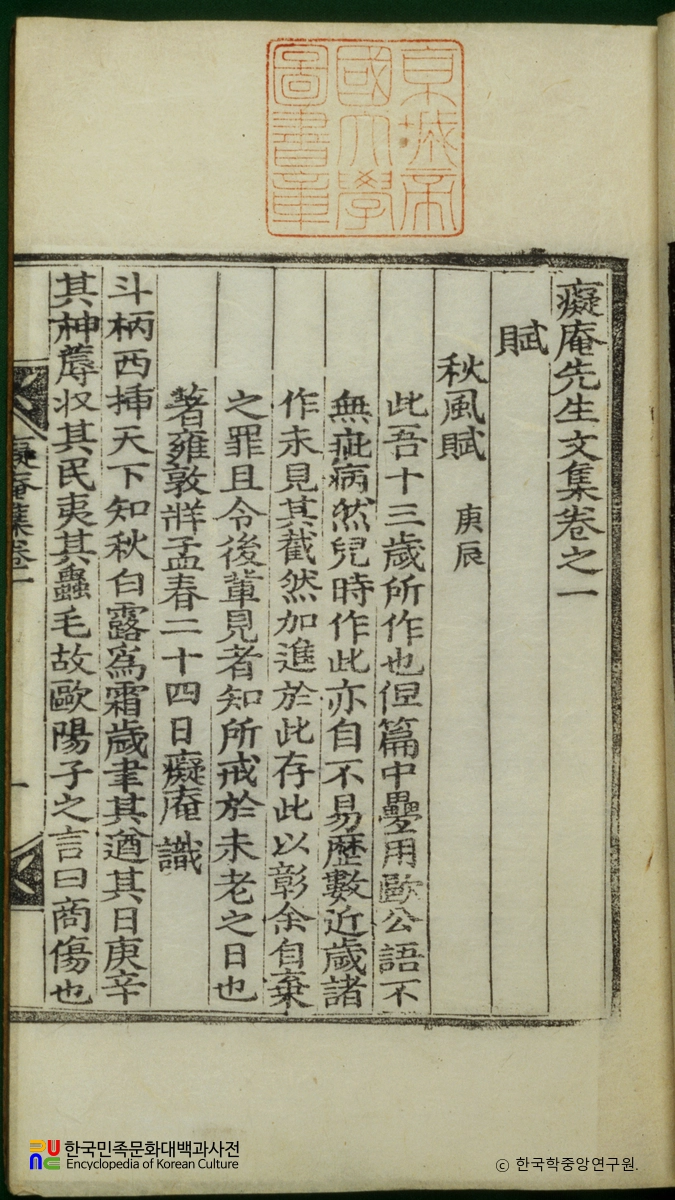 京城帝
國大學
圖書章
癡庵先生文集卷之一
賦
秋風賦 庚辰
此吾十三歲所作也但篇中疊用歐公語不
無疵病然兒時作此亦自不易歷數近歲諸
作未見其截然加進於此存此以彰余自棄
之罪且令後輩見者知所戒於未老之日也
著雍敦牂孟春二十四日癡庵識
斗柄西揷天下知秋白露爲霜歲聿其遒其日庚辛
其神蓐收其民夷其蟲毛故歐陽子之言曰商傷也
癡庵集卷一
一
한국민족문화대백과사전
Encyclopedia of Korean Culture
© 한국학중앙연구원.